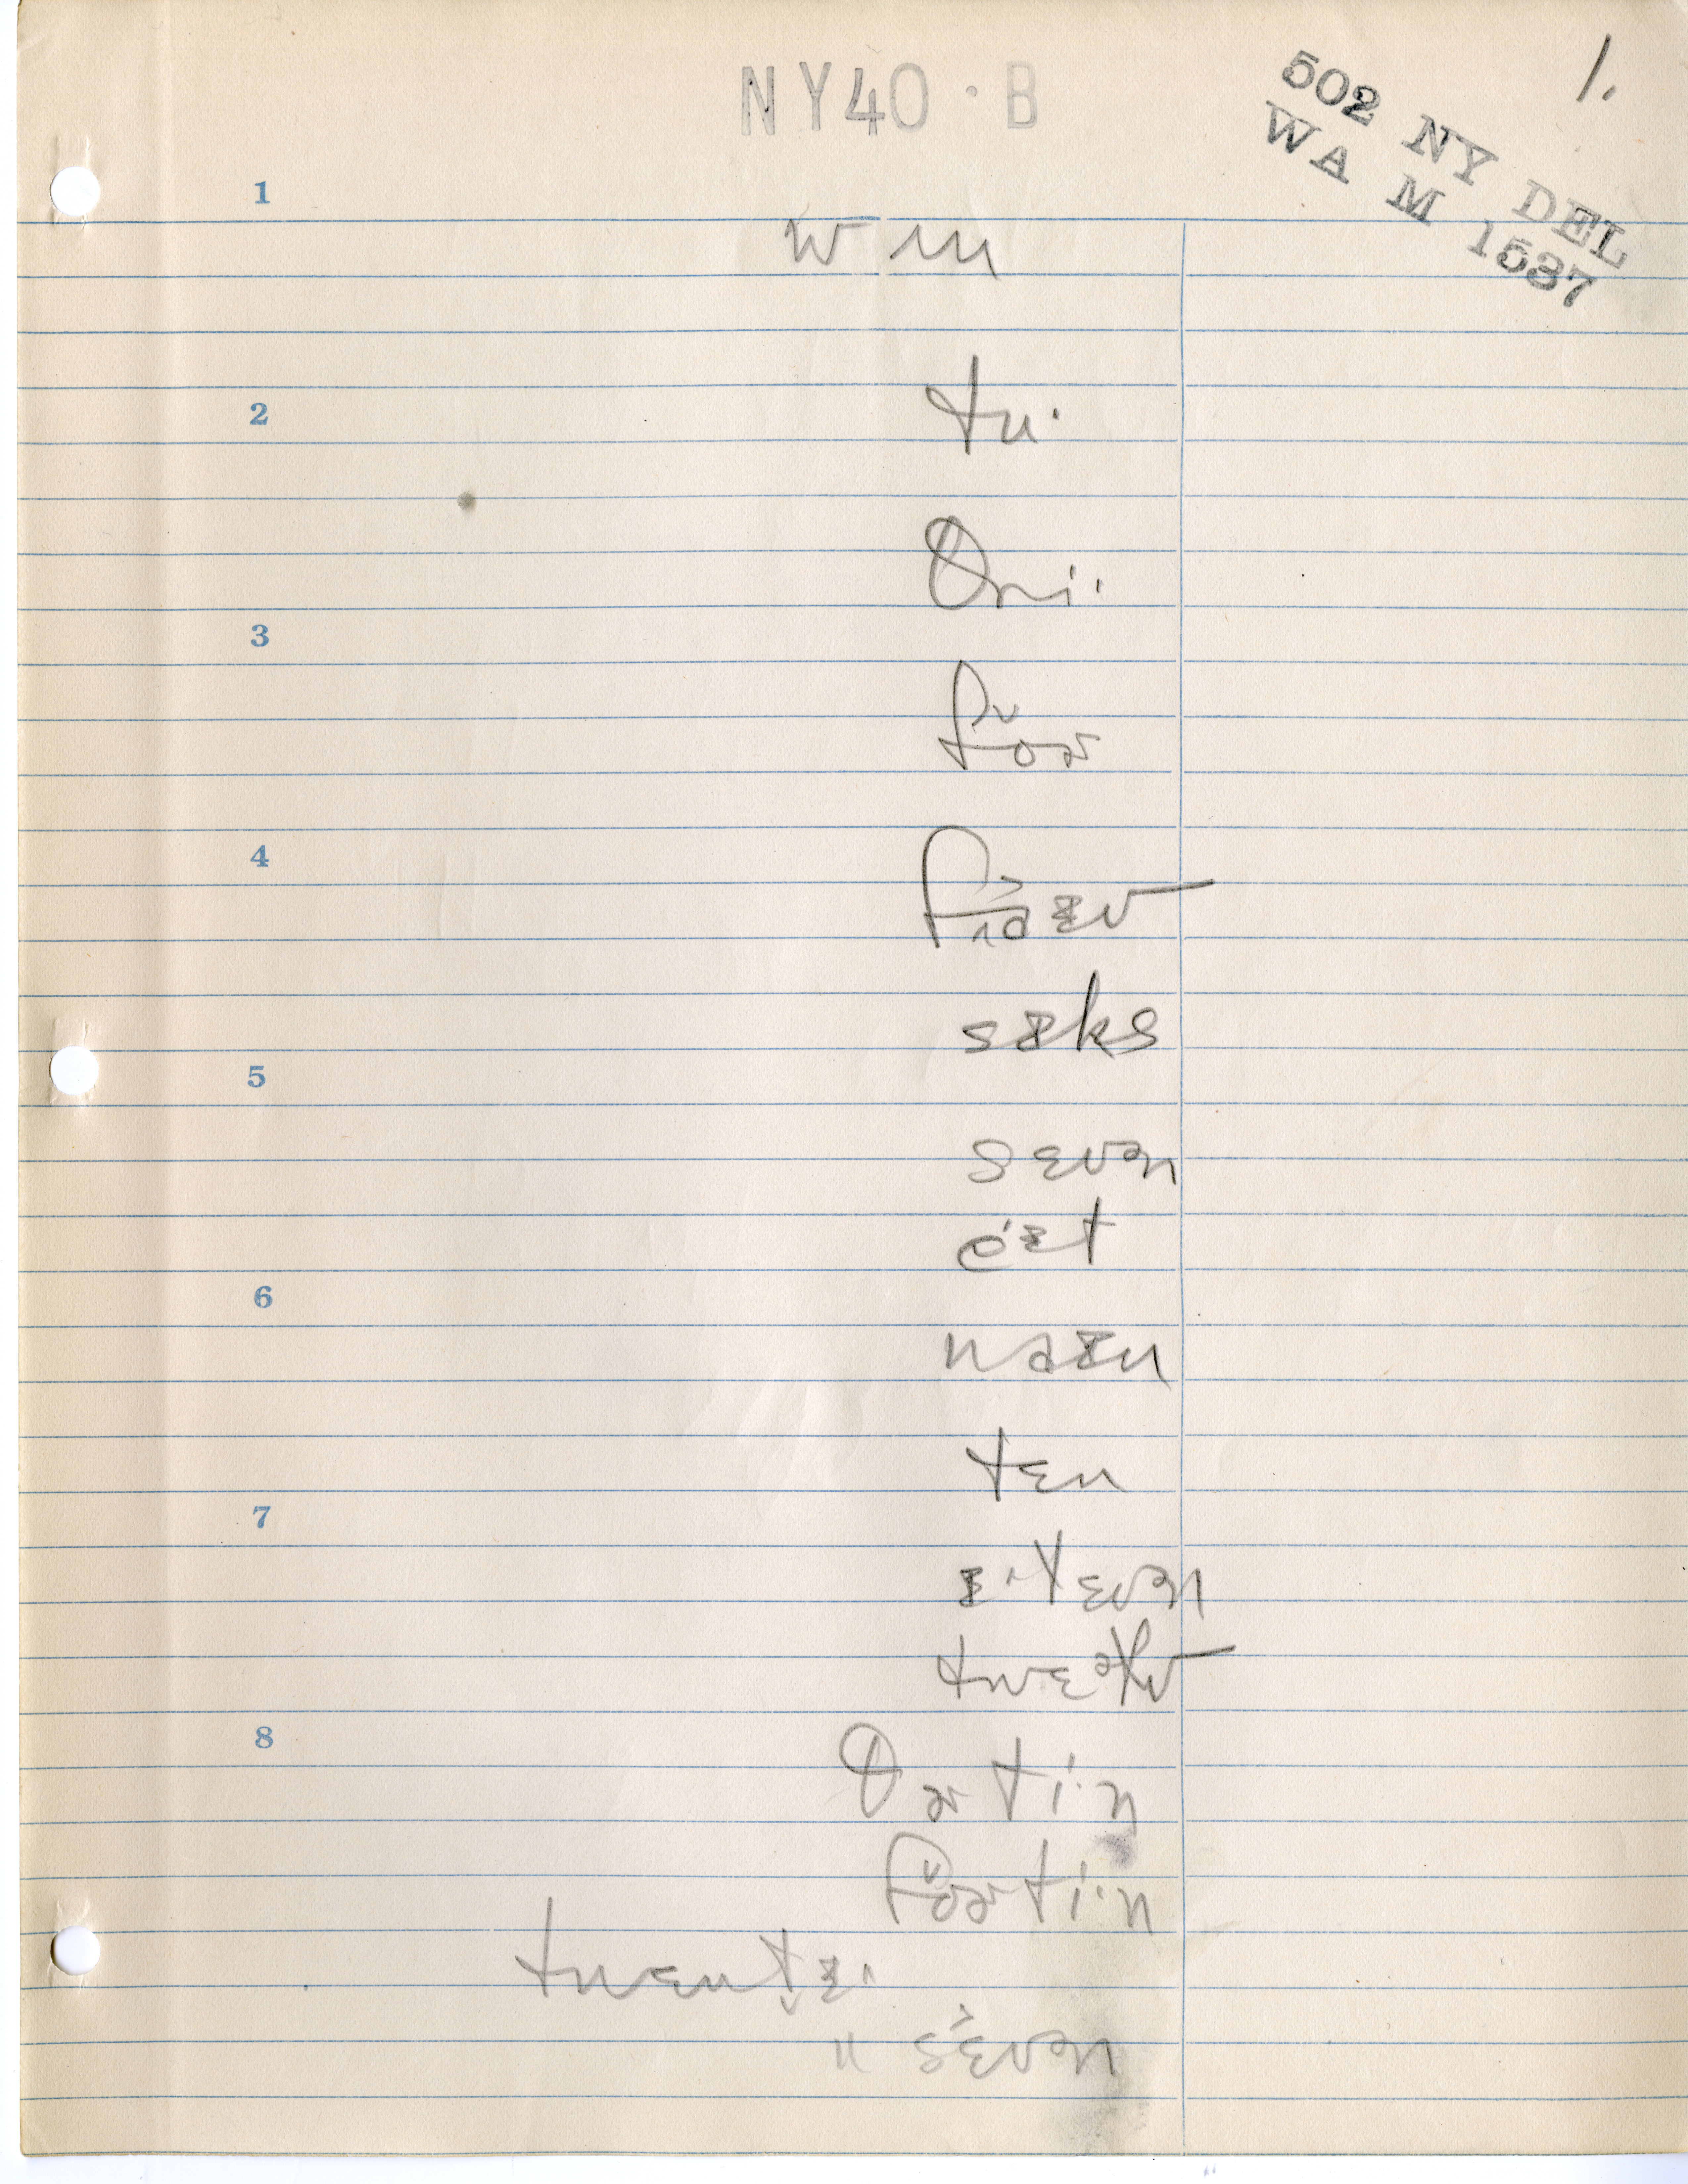 1.
NY40·B
502 NY DEL
WA M 1587
1
wʌn
2
tu·
θri·
3
fo̬ɚ
4
fa̭ɪv
sɪks
5
sɛvən
eɪt
6
naɪn
tɛn
7
ɪ·lɛvən
twɛəlv
8
θɚti·n
fo̬ɚti·n
twɛnt̬ɪ·
" sɛvən